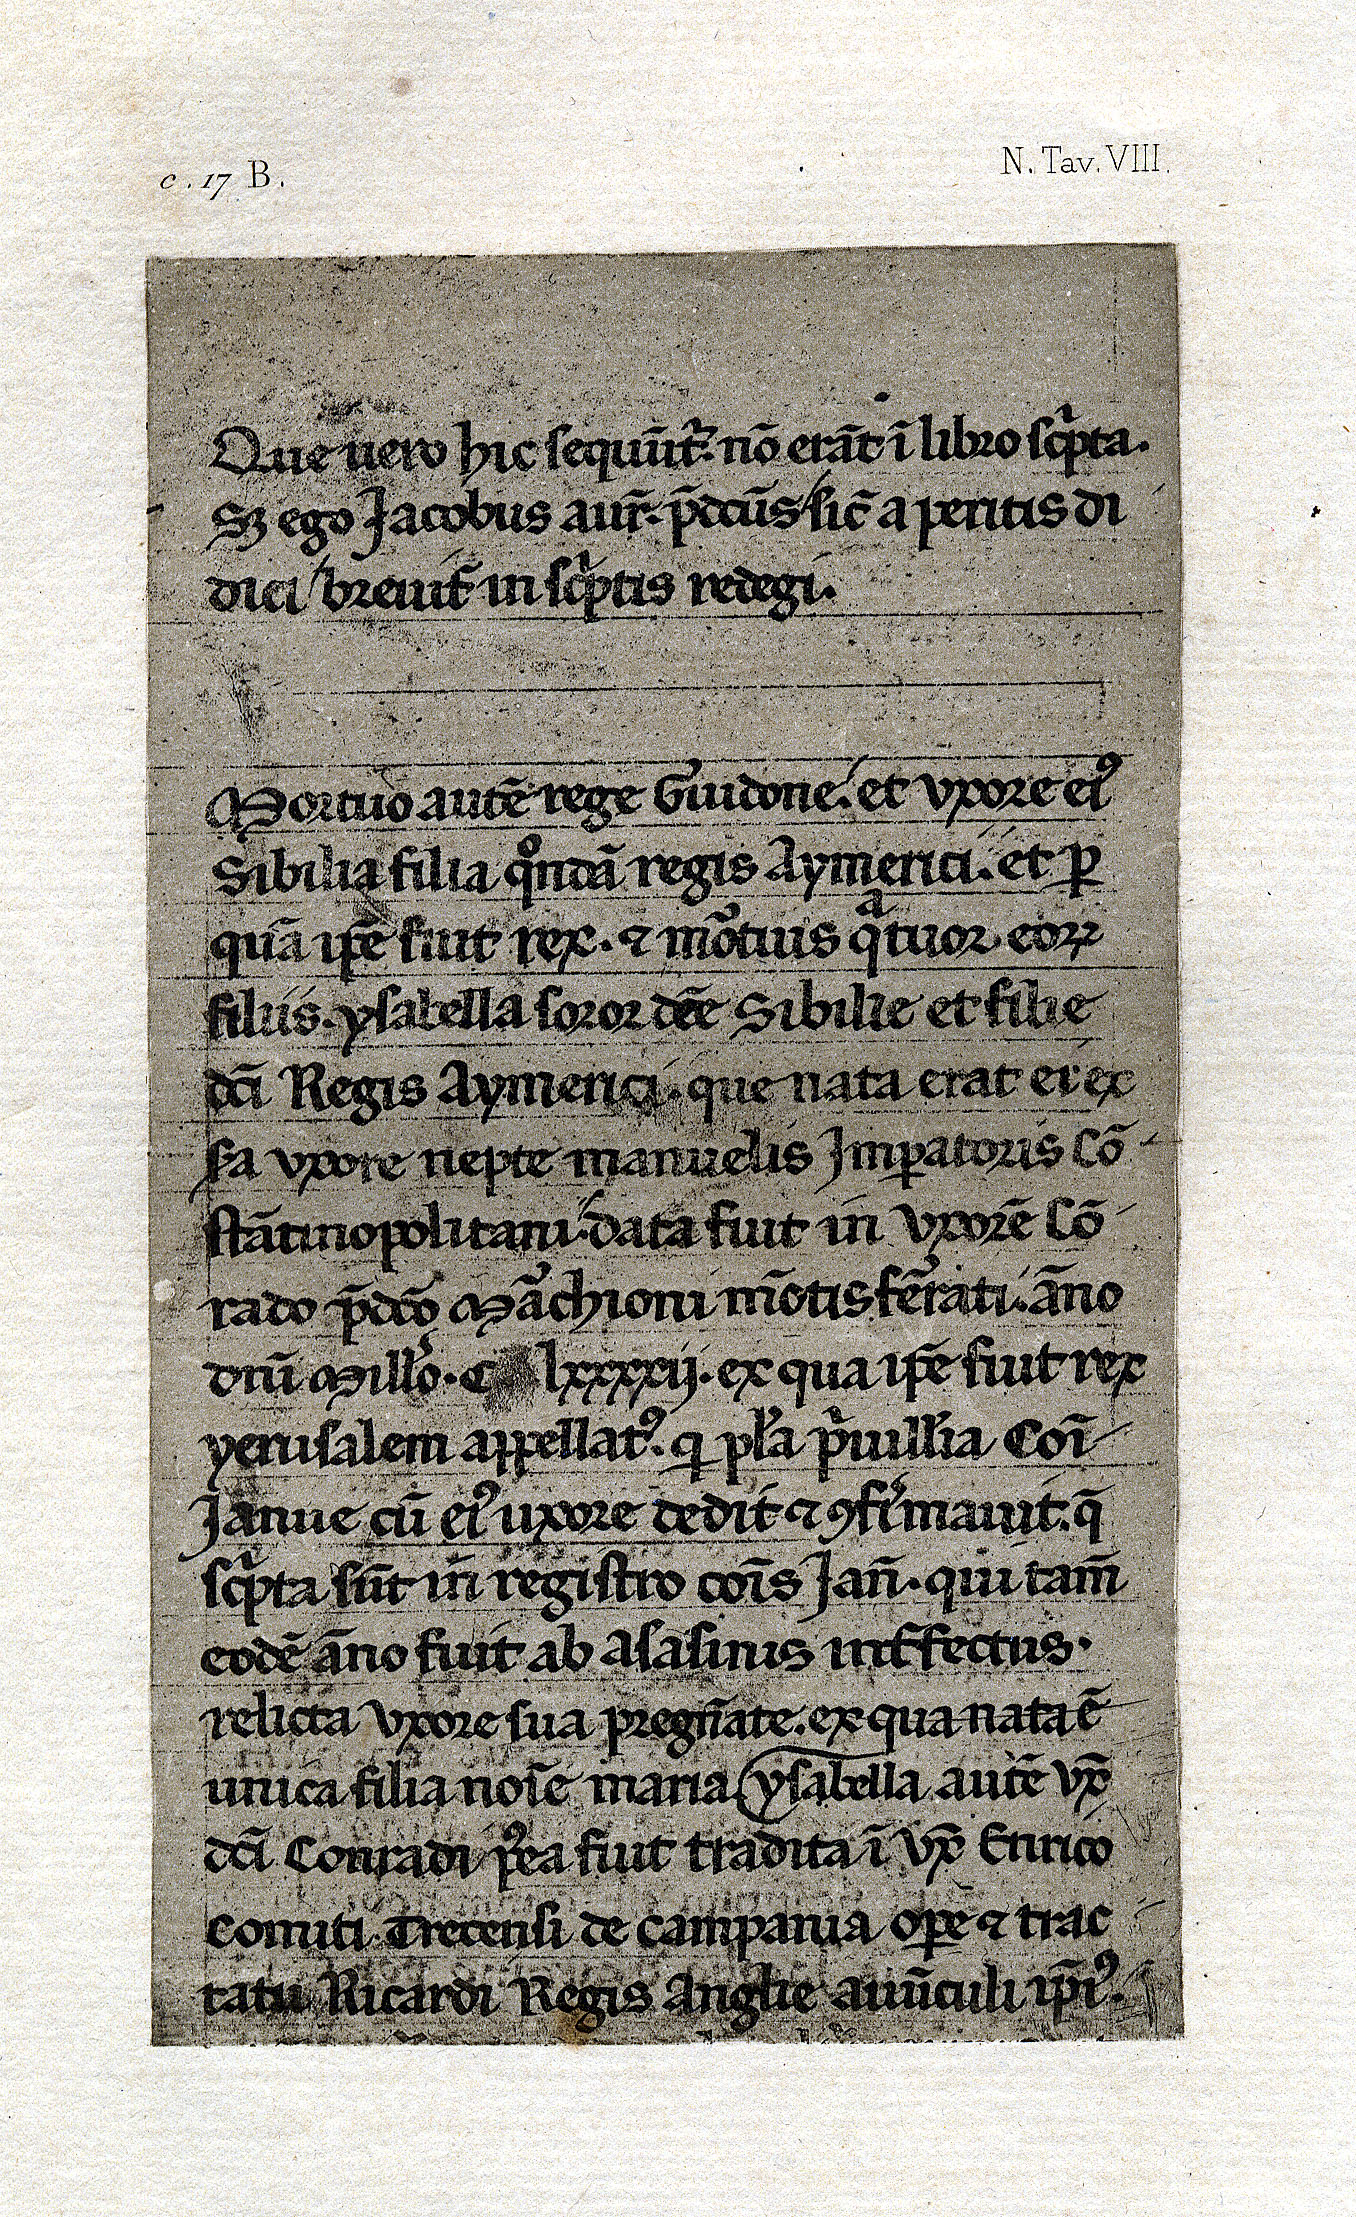 c. 17 B.
N. Tav. VIII.
Que uero hic sequūt᷑. nō erāt ī libro scͥpta.
Sꝫ ego Jacobus aur̄. p̄dcūs / sic̄ a peritis di
dici / breuit̄ in scͥptis redegi.
Mortuo autē rege Guidone. et vxore eiꝰ
Sibilia filia qͦndā regis Aymerici. et ꝑ
quā ip̄e fuit rex. ⁊ mōtuis qͣtuor eoꝝ
filiis. ysabella soror dc̄e Sibilie et filie
dc̄i Regis Aymerici. que nata erat ei ex
sͣa vxore nepte manuelis Jmꝑatoris Cō
stātinopolitani. data fuit in vxorē Cō
rado p̄dc̄o Mͣchioni mōtisfer̄ati. āno
dn̄i Mill̄o. C lxxxxij. ex qua ip̄e fuit rex
yerusalem appellatꝰ. q̄ pl̄a pͥuill̄ia Coī
Janue cū eiꝰ uxore dedit ⁊ ꝯfirmauit. q̄
scͥpta sūt in registro coīs Jan̄. qui tam̄
eodē āno fuit ab asasinis int̄fectus.
relicta vxore sua pregn̄ate. ex qua nata ē
unica filia noīe maria ysabella autē vx̄
dc̄i Conradi pꝰea fuit tradita ī vx̄ Enrico
Comiti Trecensi de campania oꝑe ⁊ trac
tatu Ricardi Regis Anglie auūculi ip̄iꝰ.